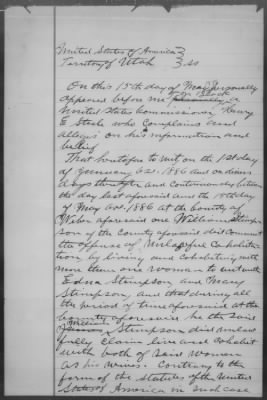 United States of America }
Territory of Utah } ss
On this 15th day of May personally
appeared before me a
United States Commissioner Henry
E Steele who Complains and
alleges on his information and
belief
That heretofore to wit on the 1st day
of January A.D. 1886 and on divers
days thereafter and Continuously between
the day last aforesaid and the day
of May A.D. 1886 at the County of
Weber aforesaid one William Stimp-
son of the County aforesaid did Commit
the offense of Unlawful Cohabita-
tion by living and Cohabiting with
more than one woman to wit with
Edna Stimpson and Mary
Stimpson, and that during all
the period of time aforesaid at the
County aforesaid he the said
William Stimpson did unlaw-
fully claim live and cohabit
with both of said women
as his wives. Contrary to the
form of the statutes of the United
States of America in such case